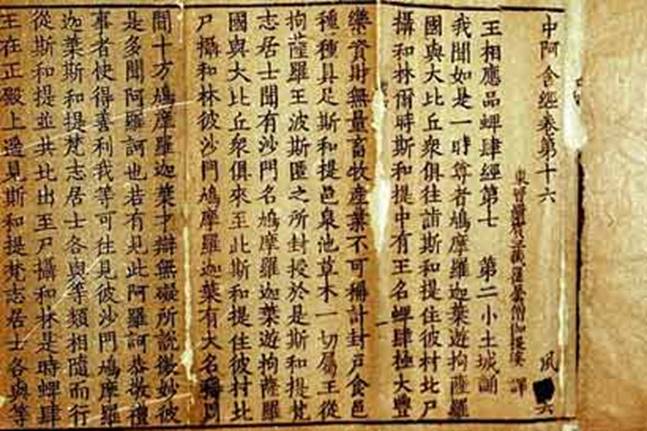 中阿含經卷第十六 風 六
東晉罽賓三藏瞿曇僧伽提婆 譯
王相應品蜱肆經第七 第二小土城誦
我聞如是一時尊者鳩摩羅迦葉遊拘薩羅
國與大比丘衆俱往詣斯和提住彼村北尸
攝和林爾時斯和提中有王名蜱肆極大豐
樂資財無量畜牧產業不可稱計封戶食邑
種種具足斯和提邑泉池草木一切屬王從
拘薩羅王波斯匿之所封授於是斯和提梵
志居士聞有沙門名鳩摩羅迦葉遊拘薩羅
國與大比丘衆俱來至此斯和提住彼村北
尸攝和林彼沙門鳩摩羅迦葉有大名稱周
聞十方鳩摩羅迦葉才辯無礙所說微妙彼
是多聞阿羅訶也若有見此阿羅訶恭敬禮
事者快得善利我等可往見彼沙門鳩摩羅
迦葉斯和提梵志居士各與等類相隨而行
從斯和提並共北出至尸攝和林是時蜱肆
王在正殿上遙見斯和提梵志居士各與等